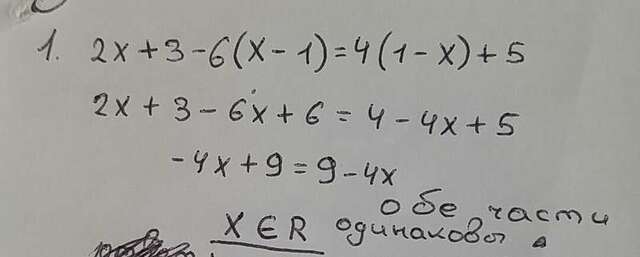 1. 2x+3-6(x-1)=4(1-x)+5
2x+3-6x+6=4-4x+5
-4x+9=9-4x
обе части
X∈R одинаковы.